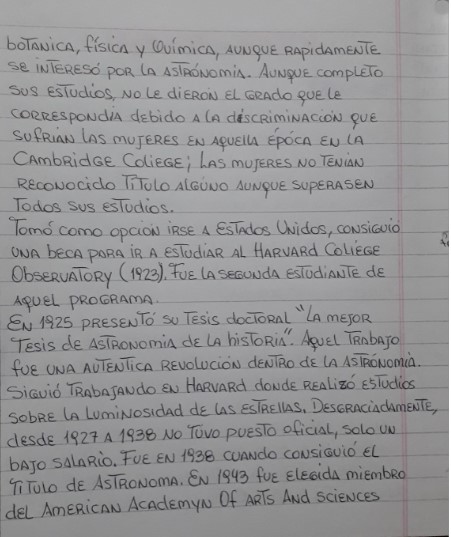 botánica, física y química, aunque rapidamente
se interesó por la astrónomia. Aunque completo
sus estudios, no le dieron el grado que le
correspondia debido a la discriminación que
sufrian las mujeres en aquella época en la
Cambridge Coliege; las mujeres no tenian
reconocido título alguno aunque superasen
todos sus estudios.
Tomó como opción irse a Estados Unidos, consiguió
una beca para ir a estudiar al Harvard Coliege
Observatory (1923). Fue la segunda estudiante de
aquel programa.
En 1925 presentó su tesis doctoral "La mejor
tesis de astronomia de la historia". Aquel trabajo
fue una autentica revolución dentro de la astrónomia.
Siguió trabajando en Harvard donde realizó estudios
sobre la luminosidad de las estrellas. Desgraciadamente,
desde 1927 a 1938 no tuvo puesto oficial, solo un
bajo salario. Fue en 1938 cuando consiguió el
título de astronoma. En 1943 fue elegida miembro
del American Academyn Of Arts And Sciences